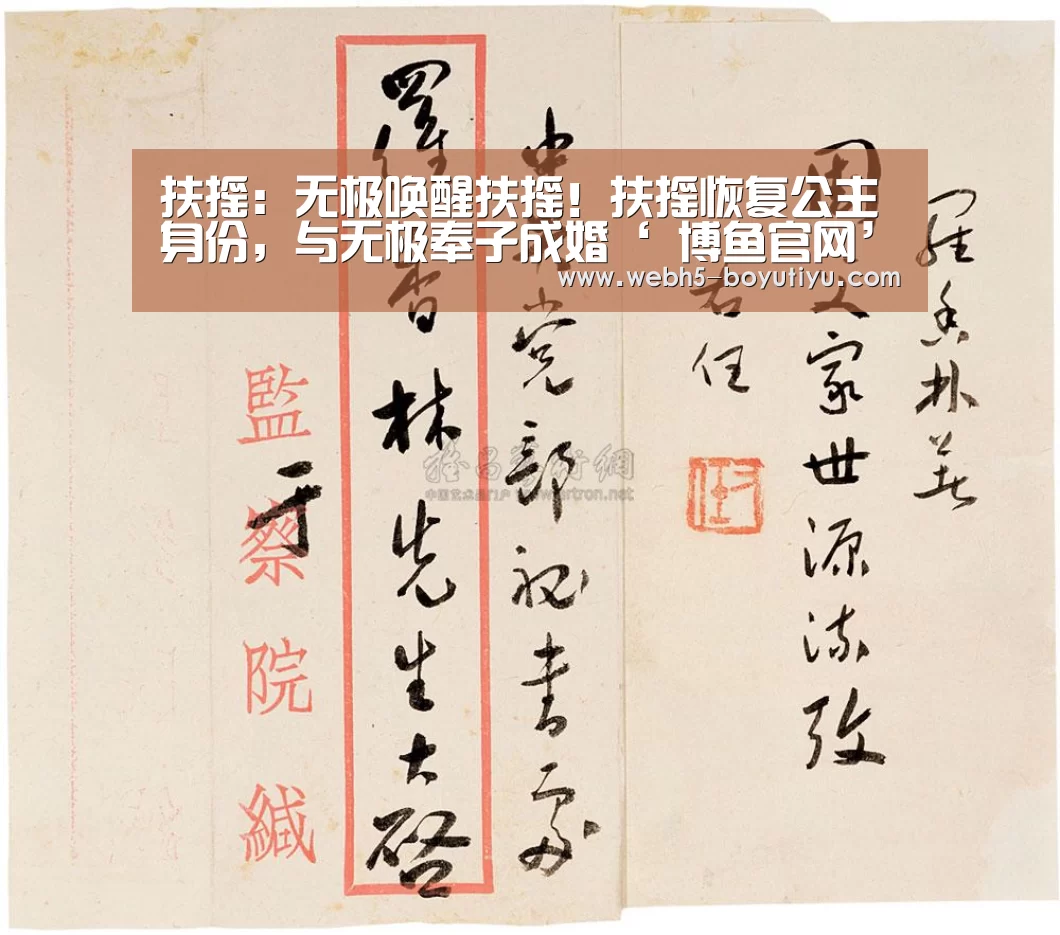 扶摇：无极唤醒扶摇！扶摇恢复公主
身份，与无极奉子成婚‘ 博鱼官网’
www.webh5-boyutiyu.com
羅香林著
国父家世源流攷
右任
中央党部秘書處
羅香林先生大啓
監察院緘
于
雅昌藝術網
中国艺术品门户 artron.net